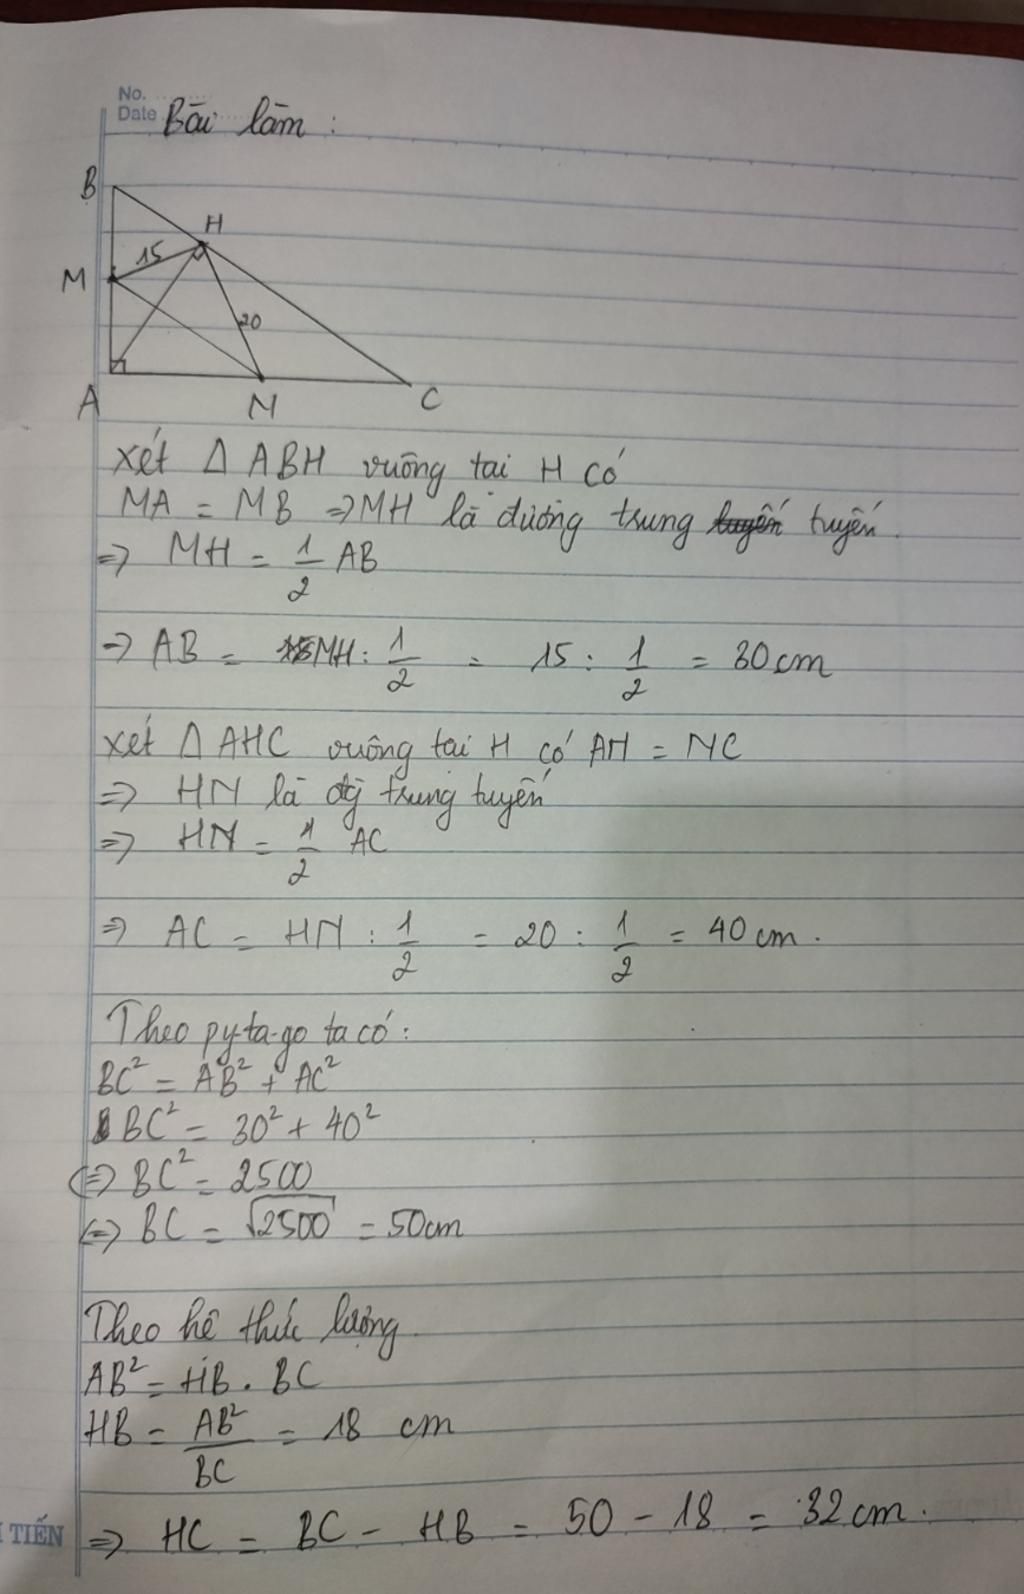 No.
Date
Bài làm :
B
H
15
M
20
A
N
C
xét Δ ABH vuông tại H có
MA = MB => MH là đường trung tuyến.
=> MH = 1/2 AB
=> AB = MH : 1/2 = 15 : 1/2 = 30 cm
xét Δ AHC vuông tại H có AN = NC
=> HN là đg trung tuyến
=> HN = 1/2 AC
=> AC = HN : 1/2 = 20 : 1/2 = 40 cm.
Theo py-ta-go ta có :
BC² = AB² + AC²
BC² = 30² + 40²
<=> BC² = 2500
<=> BC = √2500 = 50cm
Theo hệ thức lượng.
AB² = HB . BC
HB = AB²/BC = 18 cm
TIẾN
=> HC = BC - HB = 50 - 18 = 32 cm.